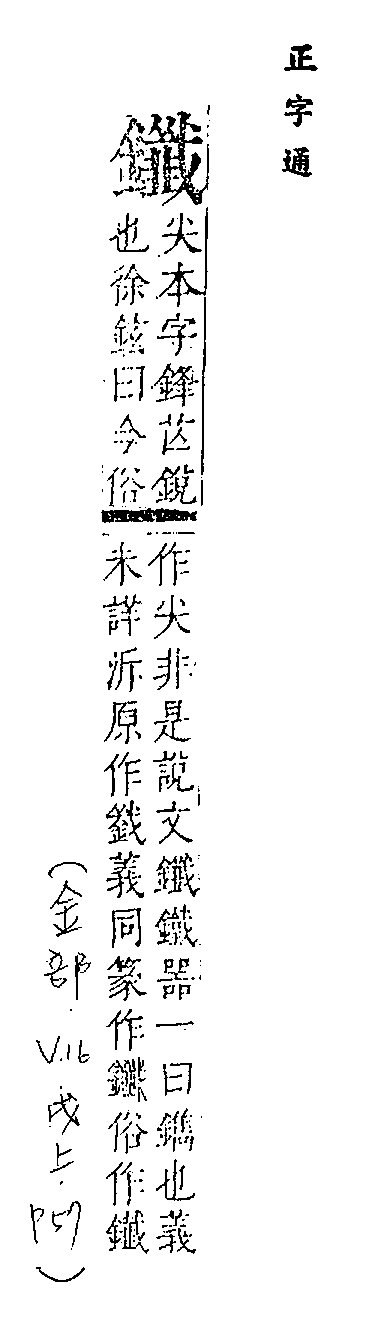 正字通
鑯
尖本字鋒芒銳
也徐鉉曰今俗
作尖非是說文鑯鐵器一曰鐫也義
未詳泝原作義同篆作鑯俗作
(金部.V.16.戌上.P57)